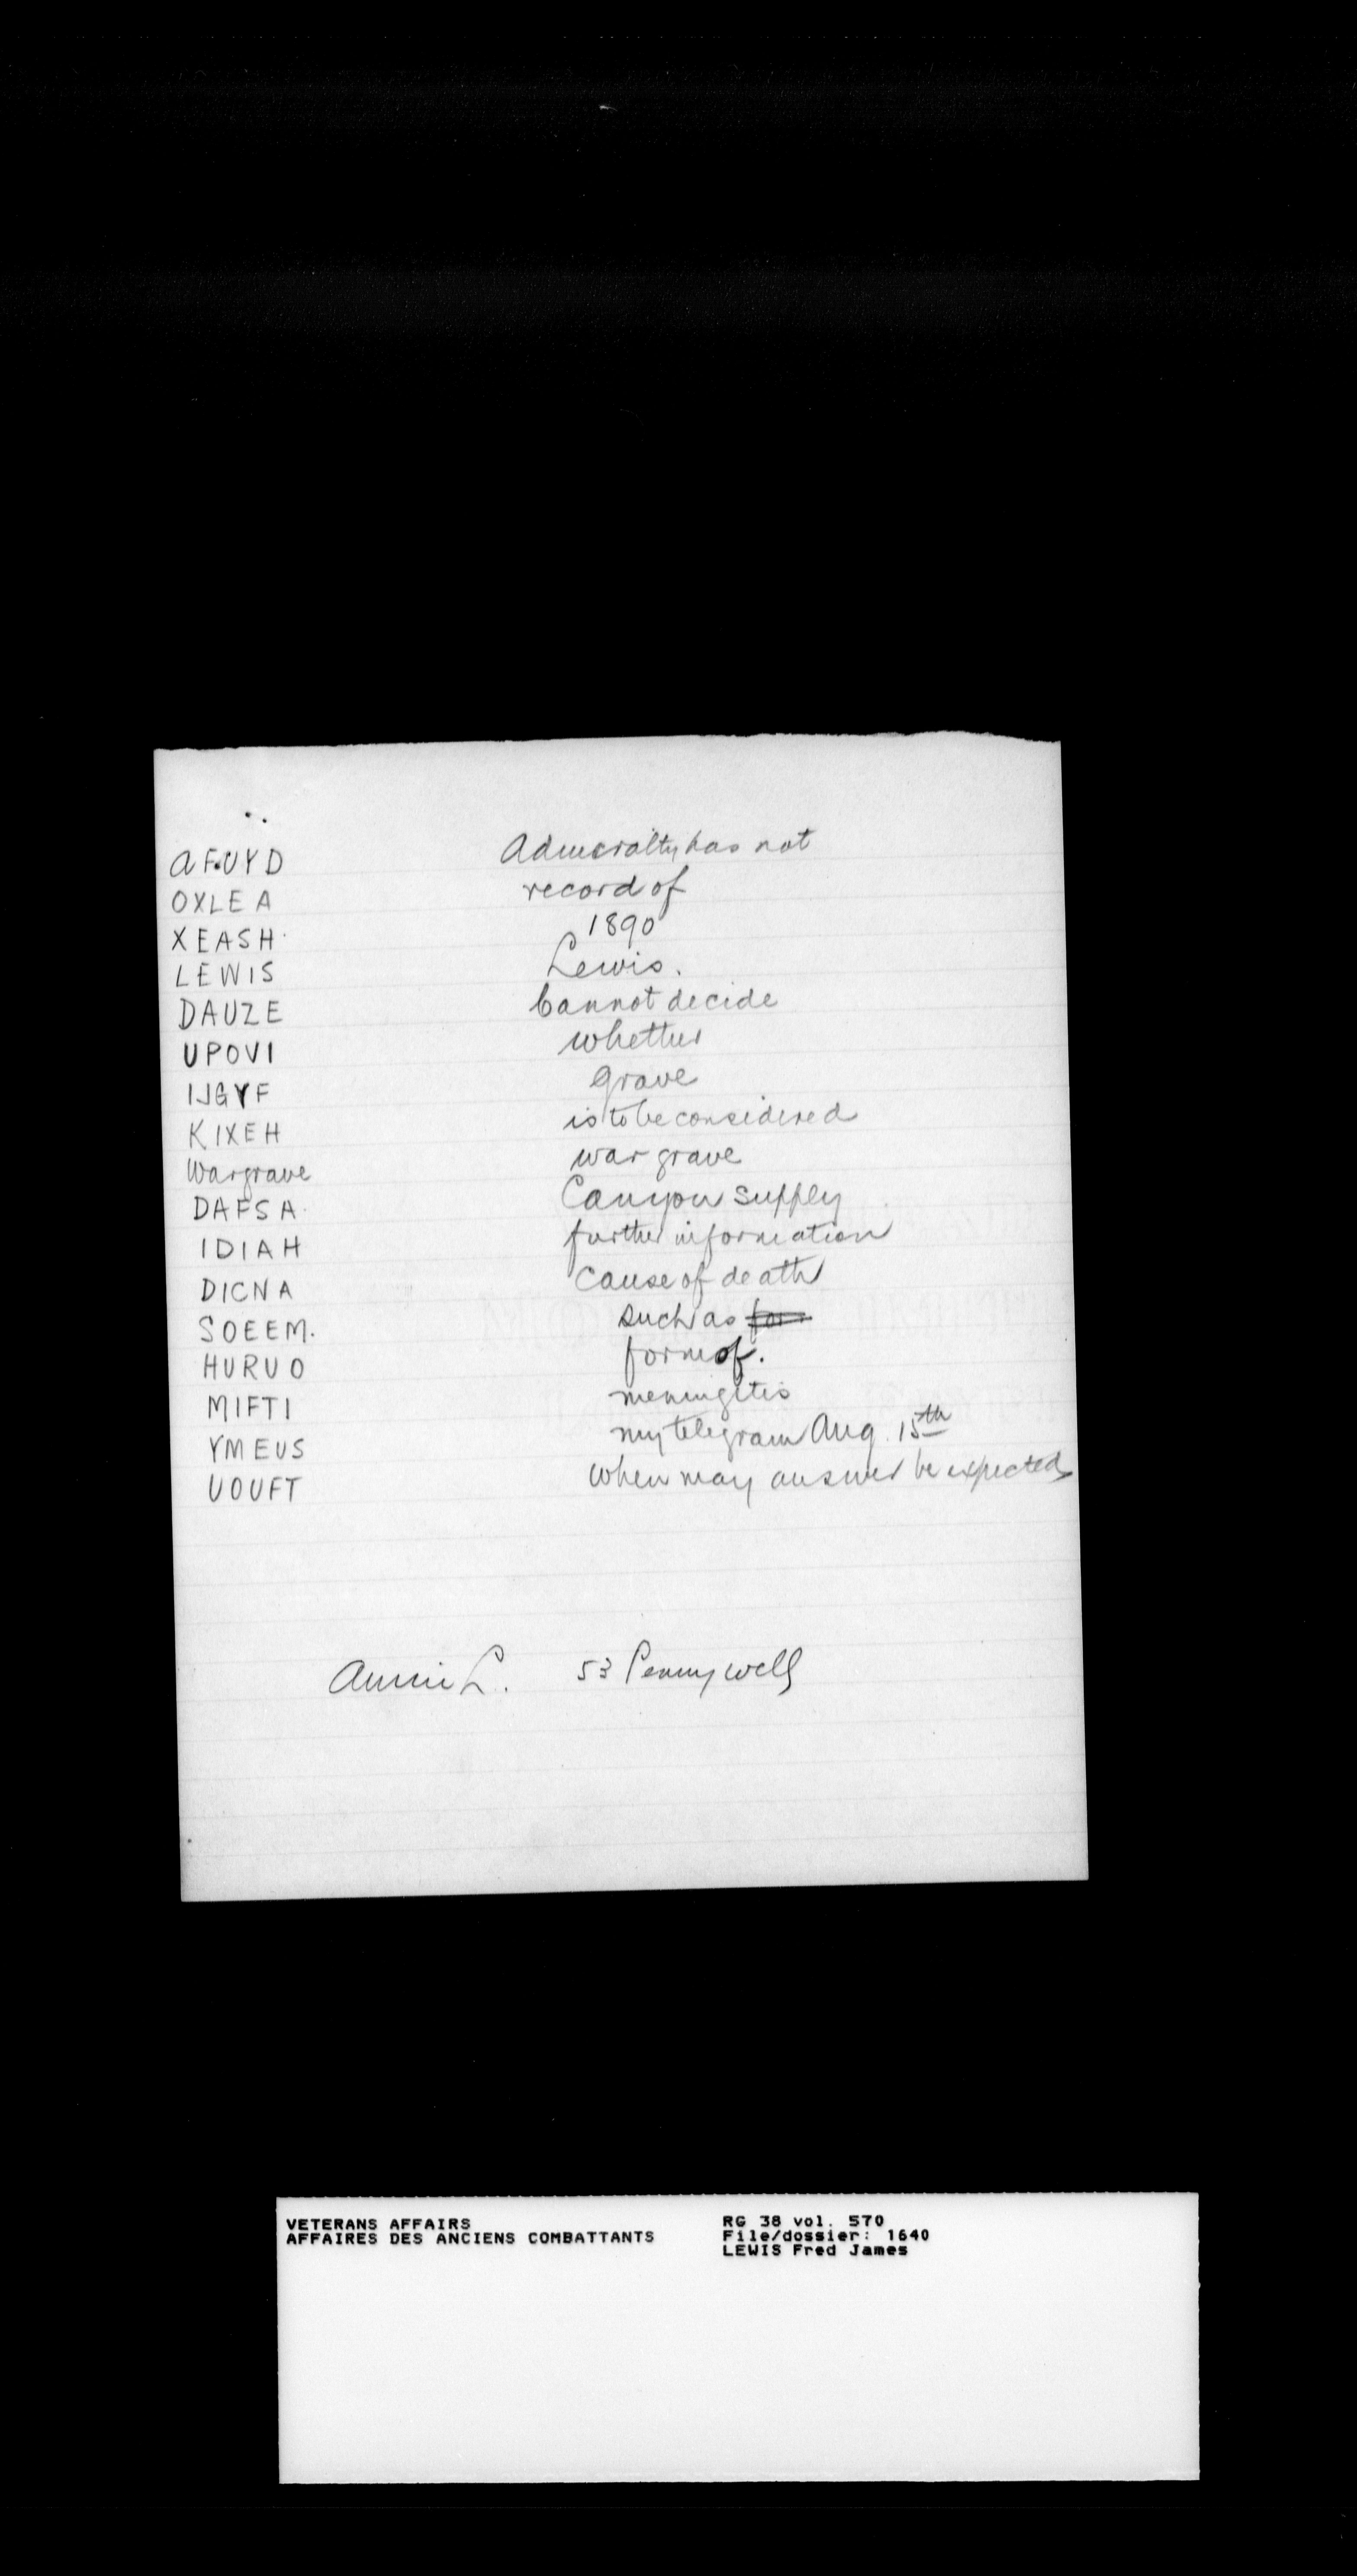 AFUYD Admiralty has not
OXLEA record of
XEASH 1890
LEWIS Lewis.
DAUZE Cannot decide
UPOVI whether
IJGYF grave
KIXEH is to be considered
Wargrave war grave
DAFSA Can you supply
IDIAH further information
DICNA Cause of death
SOEEM. such as for
HURUO form of.
MIFTI meningitis
YMEUS my telegram Aug. 15th
UOUFT When may answer be expected
Annie L. 53 Pennywell
VETERANS AFFAIRS RG 38 vol. 570
AFFAIRES DES ANCIENS COMBATTANTS File/dossier: 1640
LEWIS Fred James